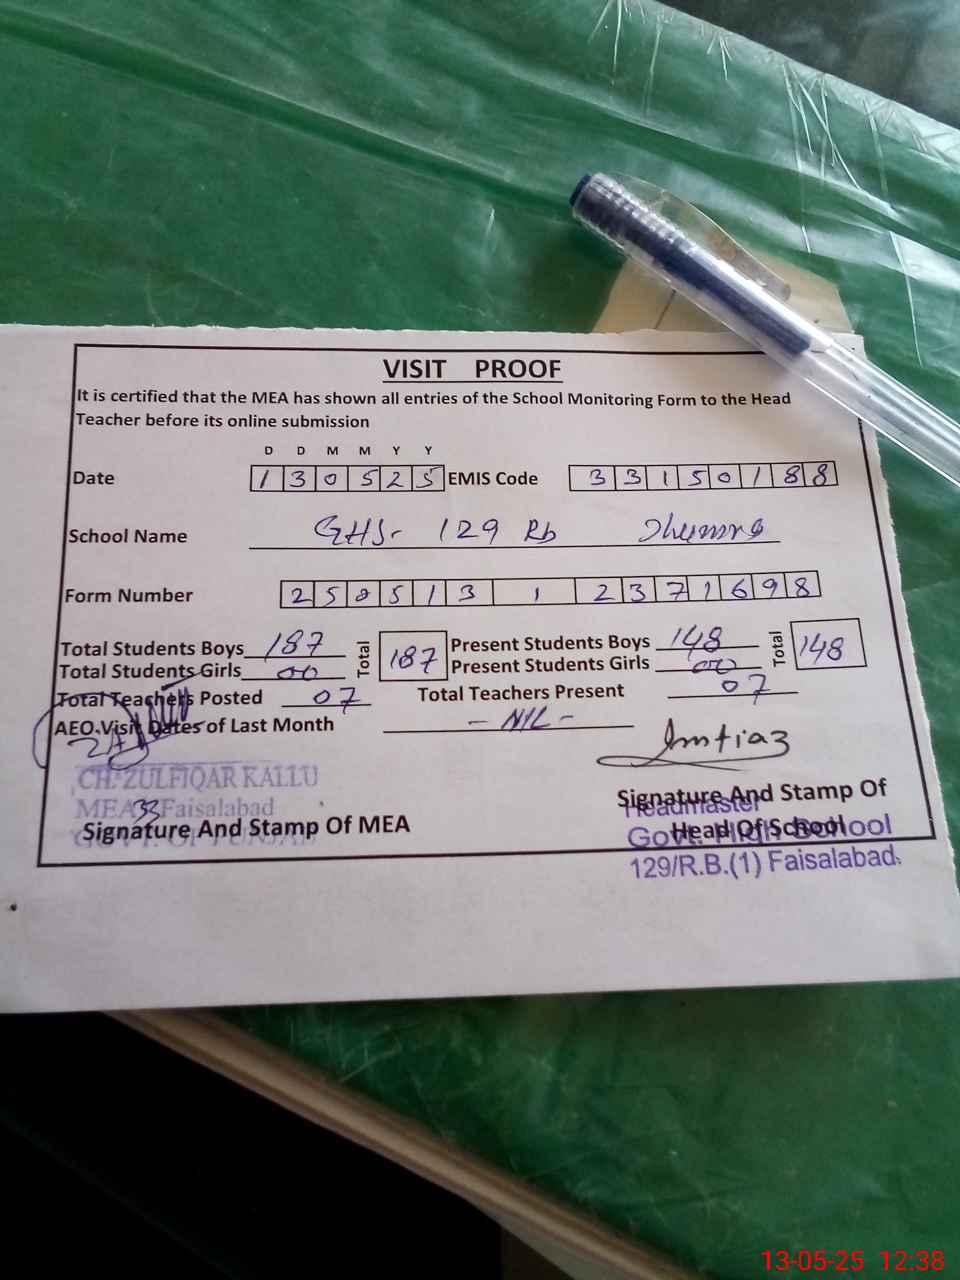 VISIT PROOF
It is certified that the MEA has shown all entries of the School Monitoring Form to the Head
Teacher before its online submission
D D M M Y Y
Date 1 3 0 5 2 5 EMIS Code 3 3 1 5 0 1 8 8
School Name GHS- 129 Rb
Form Number 2 5 0 5 1 3 1 2 3 7 1 6 9 8
Total Students Boys 187 Total 187 Present Students Boys 148 Total 148
Total Students Girls 00 Present Students Girls 00
Total Teachers Posted 07 Total Teachers Present 07
AEO Visit Dates of Last Month - NIL -
Imtiaz
CH. ZULFIQAR KALLU
MEA 33 Faisalabad
GOVT. OF PUNJAB
Signature And Stamp Of MEA
Signature And Stamp Of
Head Of School
Headmaster
Govt. High School
129/R.B.(1) Faisalabad.
13-05-25 12:38